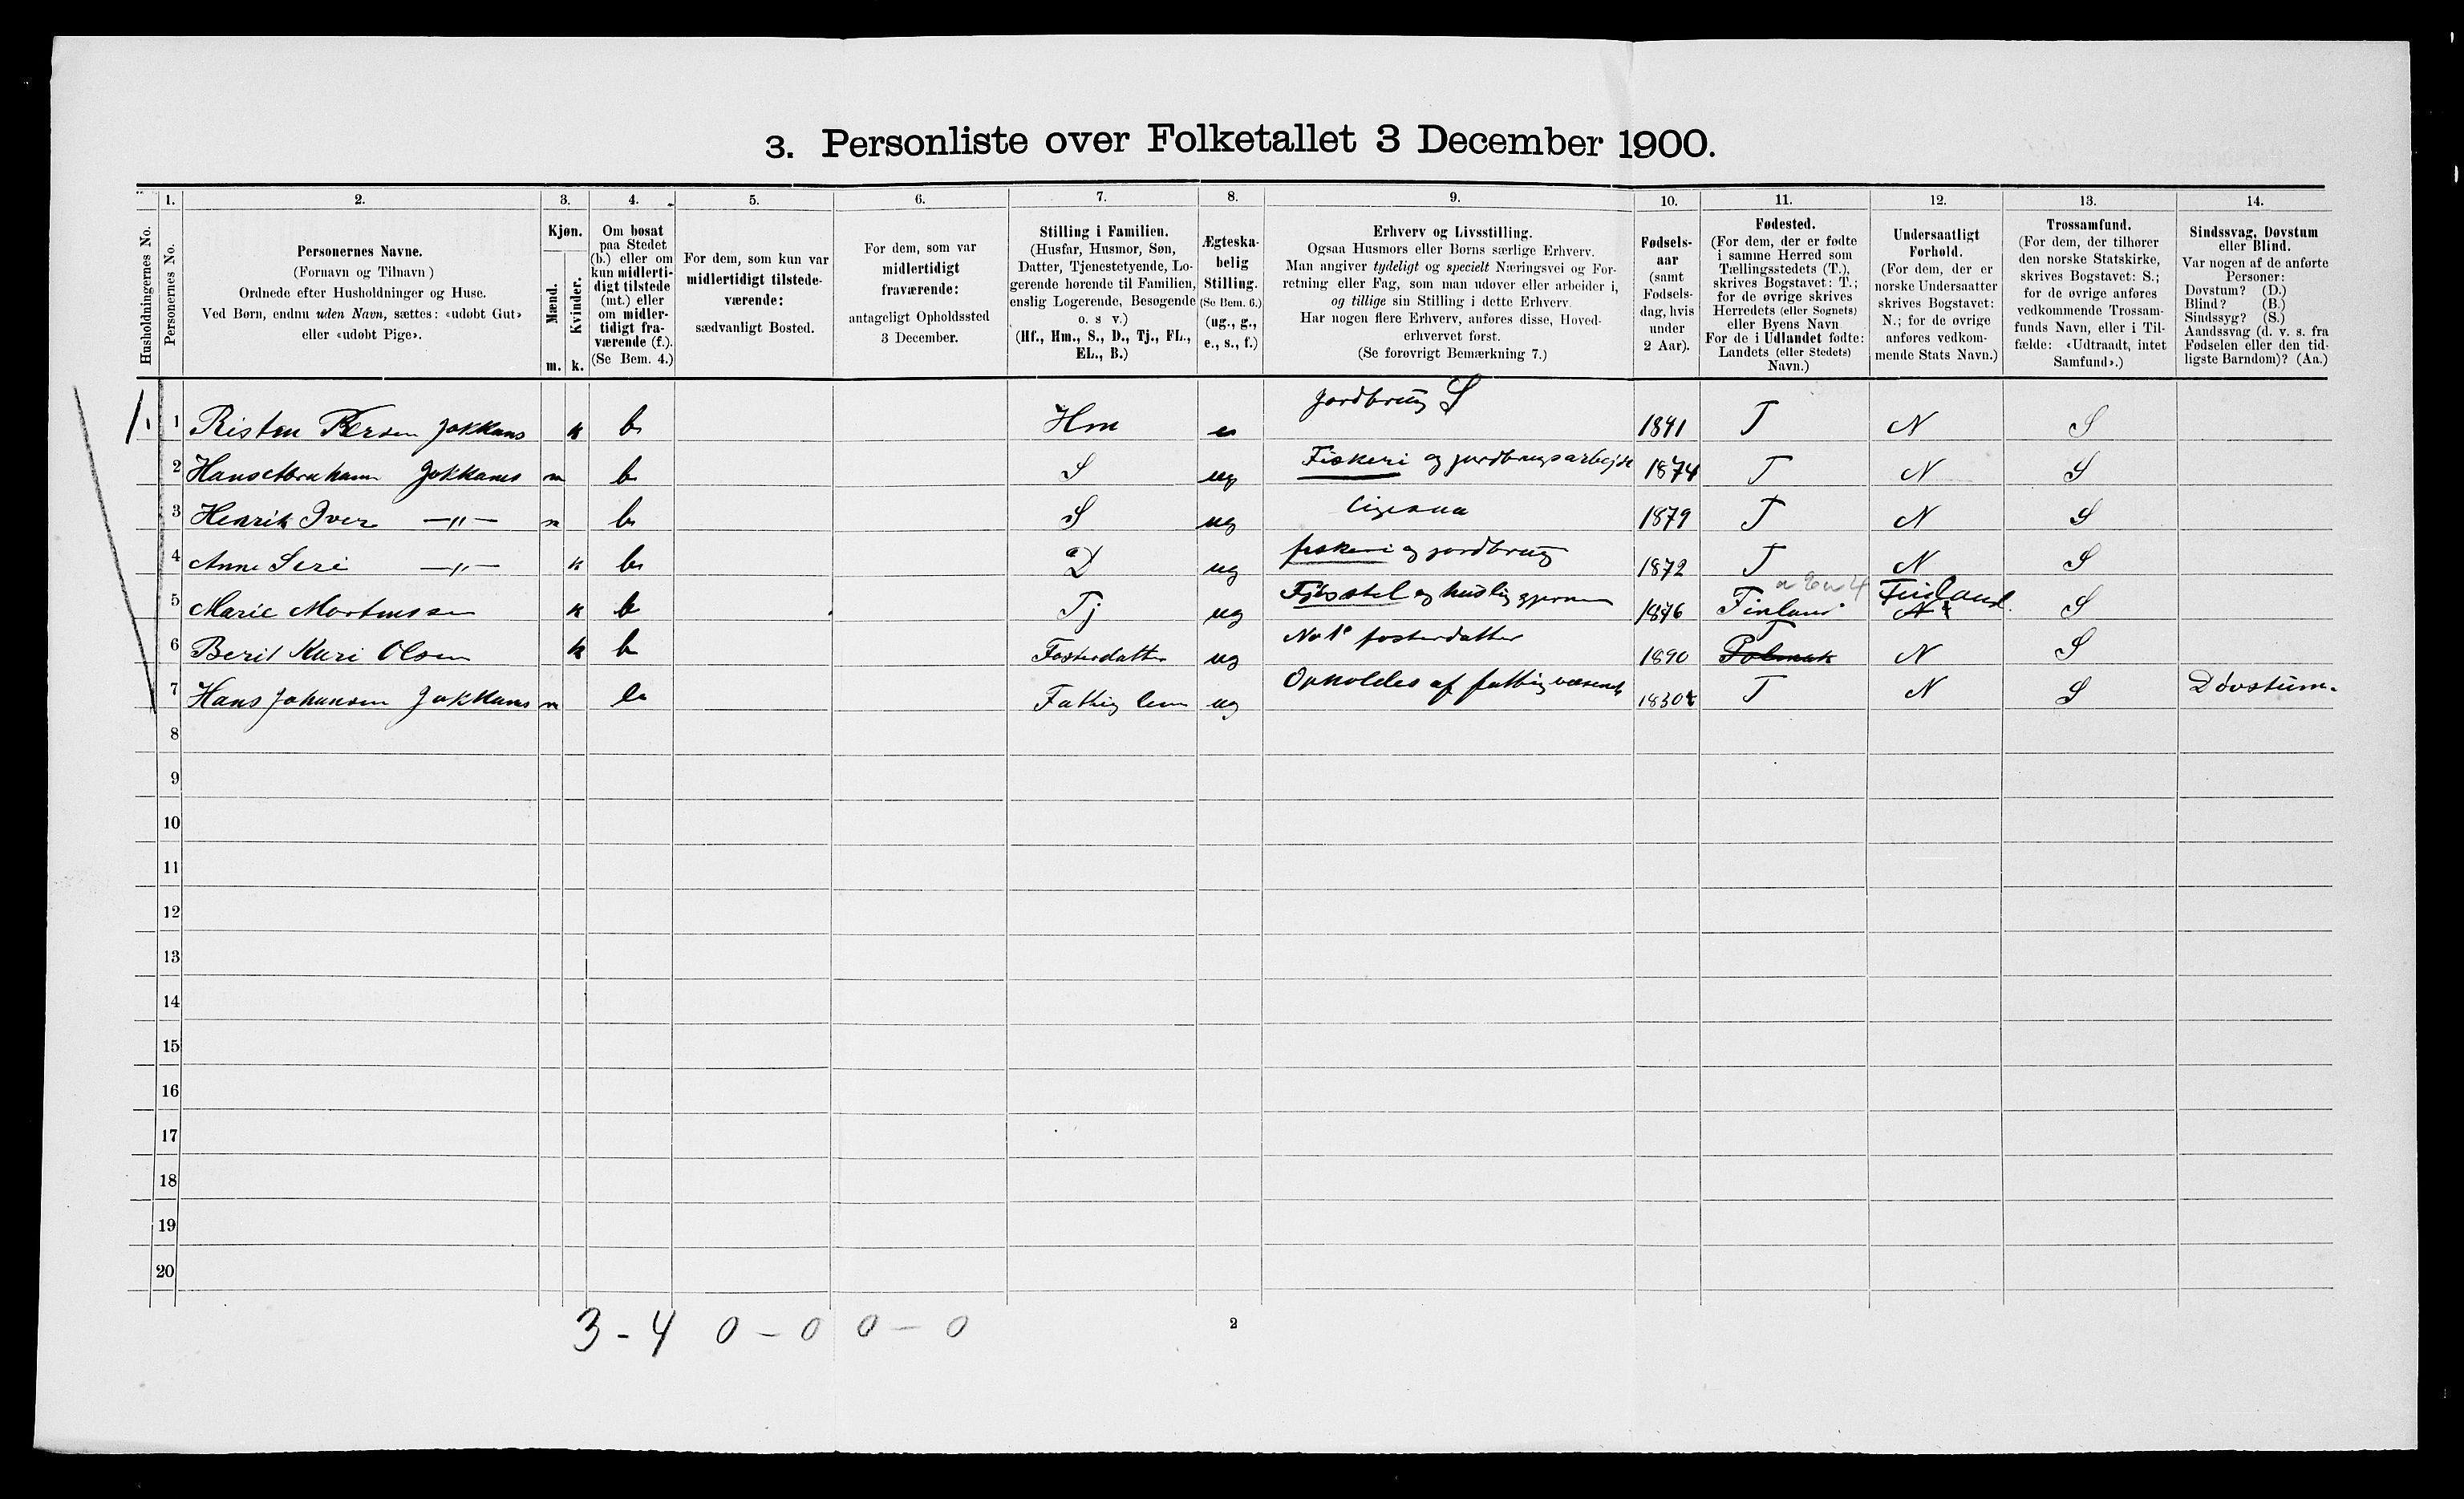 3. Personliste over Folketallet 3 December 1900.
1. 2. 3. 4. 5. 6. 7. 8. 9. 10. 11. 12. 13. 14.
Husholdningernes No.
Personernes No.
Personernes Navne.
(Fornavn og Tilnavn)
Ordnede efter Husholdninger og Huse.
Ved Børn, endnu uden Navn, sættes: «udøbt Gut»
eller «udøbt Pige».
Kjøn.
Mænd.
Kvinder.
m. k.
Om bosat
paa Stedet
(b.) eller om
kun midlerti-
digt tilstede
(mt.) eller
om midler-
tidigt fra-
værende (f.).
(Se Bem. 4.)
For dem, som kun var
midlertidigt tilstede-
værende:
sædvanligt Bosted.
For dem, som var
midlertidigt
fraværende:
antageligt Opholdssted
3 December.
Stilling i Familien.
(Husfar, Husmor, Søn,
Datter, Tjenestetyende, Lo-
gerende hørende til Familien,
enslig Logerende, Besøgende
o. s v.)
(Hf., Hm., S., D., Tj., FL.,
EL., B.)
Ægteska-
belig
Stilling.
(Se Bem. 6.)
(ug., g.,
e., s., f.)
Erhverv og Livsstilling.
Ogsaa Husmors eller Børns særlige Erhverv.
Man angiver tydeligt og specielt Næringsvei og For-
retning eller Fag, som man udøver eller arbeider i,
og tillige sin Stilling i dette Erhverv.
Har nogen flere Erhverv, anføres disse, Hoved-
erhvervet først.
(Se forøvrigt Bemærkning 7.)
Fødsels-
aar
(samt
Fødsels-
dag, hvis
under
2 Aar).
Fødested.
(For dem, der er fødte
i samme Herred som
Tællingsstedets (T.),
skrives Bogstavet: T.;
for de øvrige skrives
Herredets (eller Sognets)
eller Byens Navn
For de i Udlandet fødte:
Landets (eller Stedets)
Navn.)
Undersaatligt
Forhold.
(For dem, der er
norske Undersaatter
skrives Bogstavet:
N.; for de øvrige
anføres vedkom-
mende Stats Navn.)
Trossamfund.
(For dem, der tilhører
den norske Statskirke,
skrives Bogstavet: S.;
for de øvrige anføres
vedkommende Trossam-
funds Navn, eller i Til-
fælde: «Udtraadt, intet
Samfund».)
Sindssvag, Døvstum
eller Blind.
Var nogen af de anførte
Personer:
Døvstum? (D.)
Blind? (B.)
Sindssyg? (S.)
Aandssvag (d. v. s. fra
Fødselen eller den tid-
ligste Barndom)? (Aa.)
1. 1 Risten Persen Jokkans k b Hm e Jordbrug S 1841 T N S
2 Hans Abraham Jokkans m b S ug Fiskeri og jordbrugsarbejde 1874 T N S
3 Henrik Iver —"— m b S ug ligesaa 1879 T N S
4 Anne Seri —"— k b D ug fiskeri og jordbrug 1872 T N S
5 Marie Mortensen k b Tj ug Fjøsstel og huslig gjerning 1876 Finland Finland N S
6 Berit Kari Olsen k b Fosterdatter ug No 1s fosterdatter 1890 T Polmak N S
7 Hans Johansen Jokkans m b Fattiglem ug Opholdes af fattigvæsenet 1830 T N S Døvstum.
8
9
10
11
12
13
14
15
16
17
18
19
20
3 - 4 0 - 0 0 - 0
2